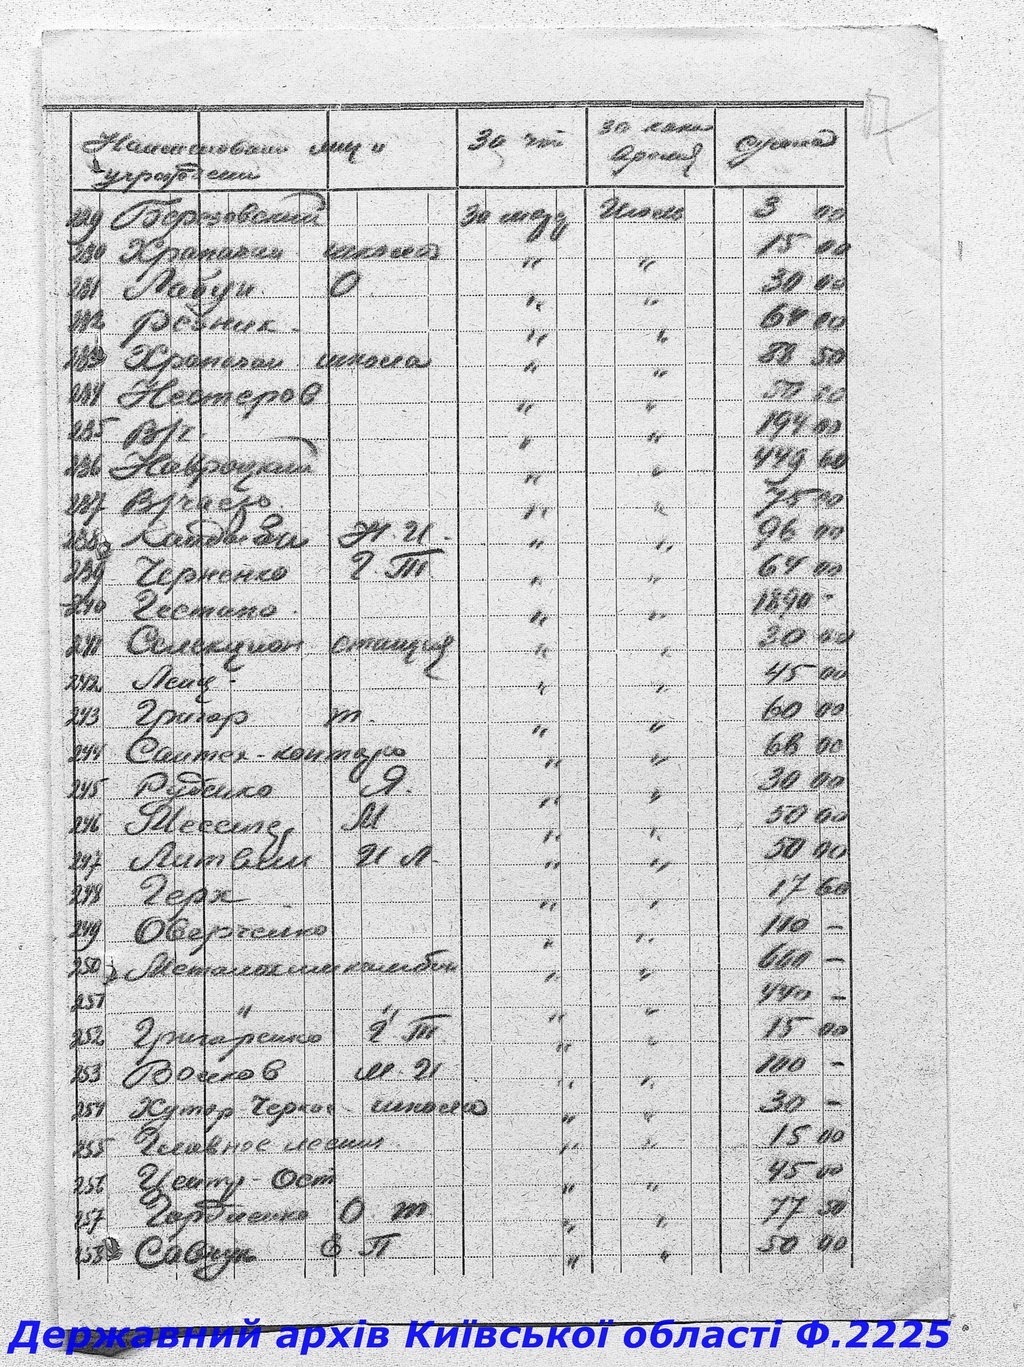 Наименование лиц и За что за какое Сумма
учреждений время
229 Березовский За мед Июль 3 00
230 школа " " 15 00
231 Лабун О " " 30 00
232 Резник " " 64 00
233 школа " " 88 50
234 Нестеров " " 50 00
235 " " 194 00
236 Навроцкий " " 449 60
237 " " 75 00
238 Ж.И. " " 96 00
239 Черненко Г Т " " 64 00
240 Гестапо " " 1890 -
241 Селекцион станция " " 30 00
242 " " 45 00
243 Григор т. " " 60 00
244 Сантех-контора " " 68 00
245 Руденко Я. " " 30 00
246 М " " 50 00
247 Литвин И Л. " " 50 00
248 Герх " " 17 60
249 Оверченко " " 110 -
250 " " 660 -
251 " " " " 440 -
252 Григоренко Г Т " " 15 00
253 Волков М.И " " 100 -
254 Хутор школа " " 30 -
255 Главное " " 15 00
256 Центр-Ост " " 45 00
257 Гордиенко О т " " 77 50
258 Савчук В П " " 50 00
Державний архів Київської області Ф.2225